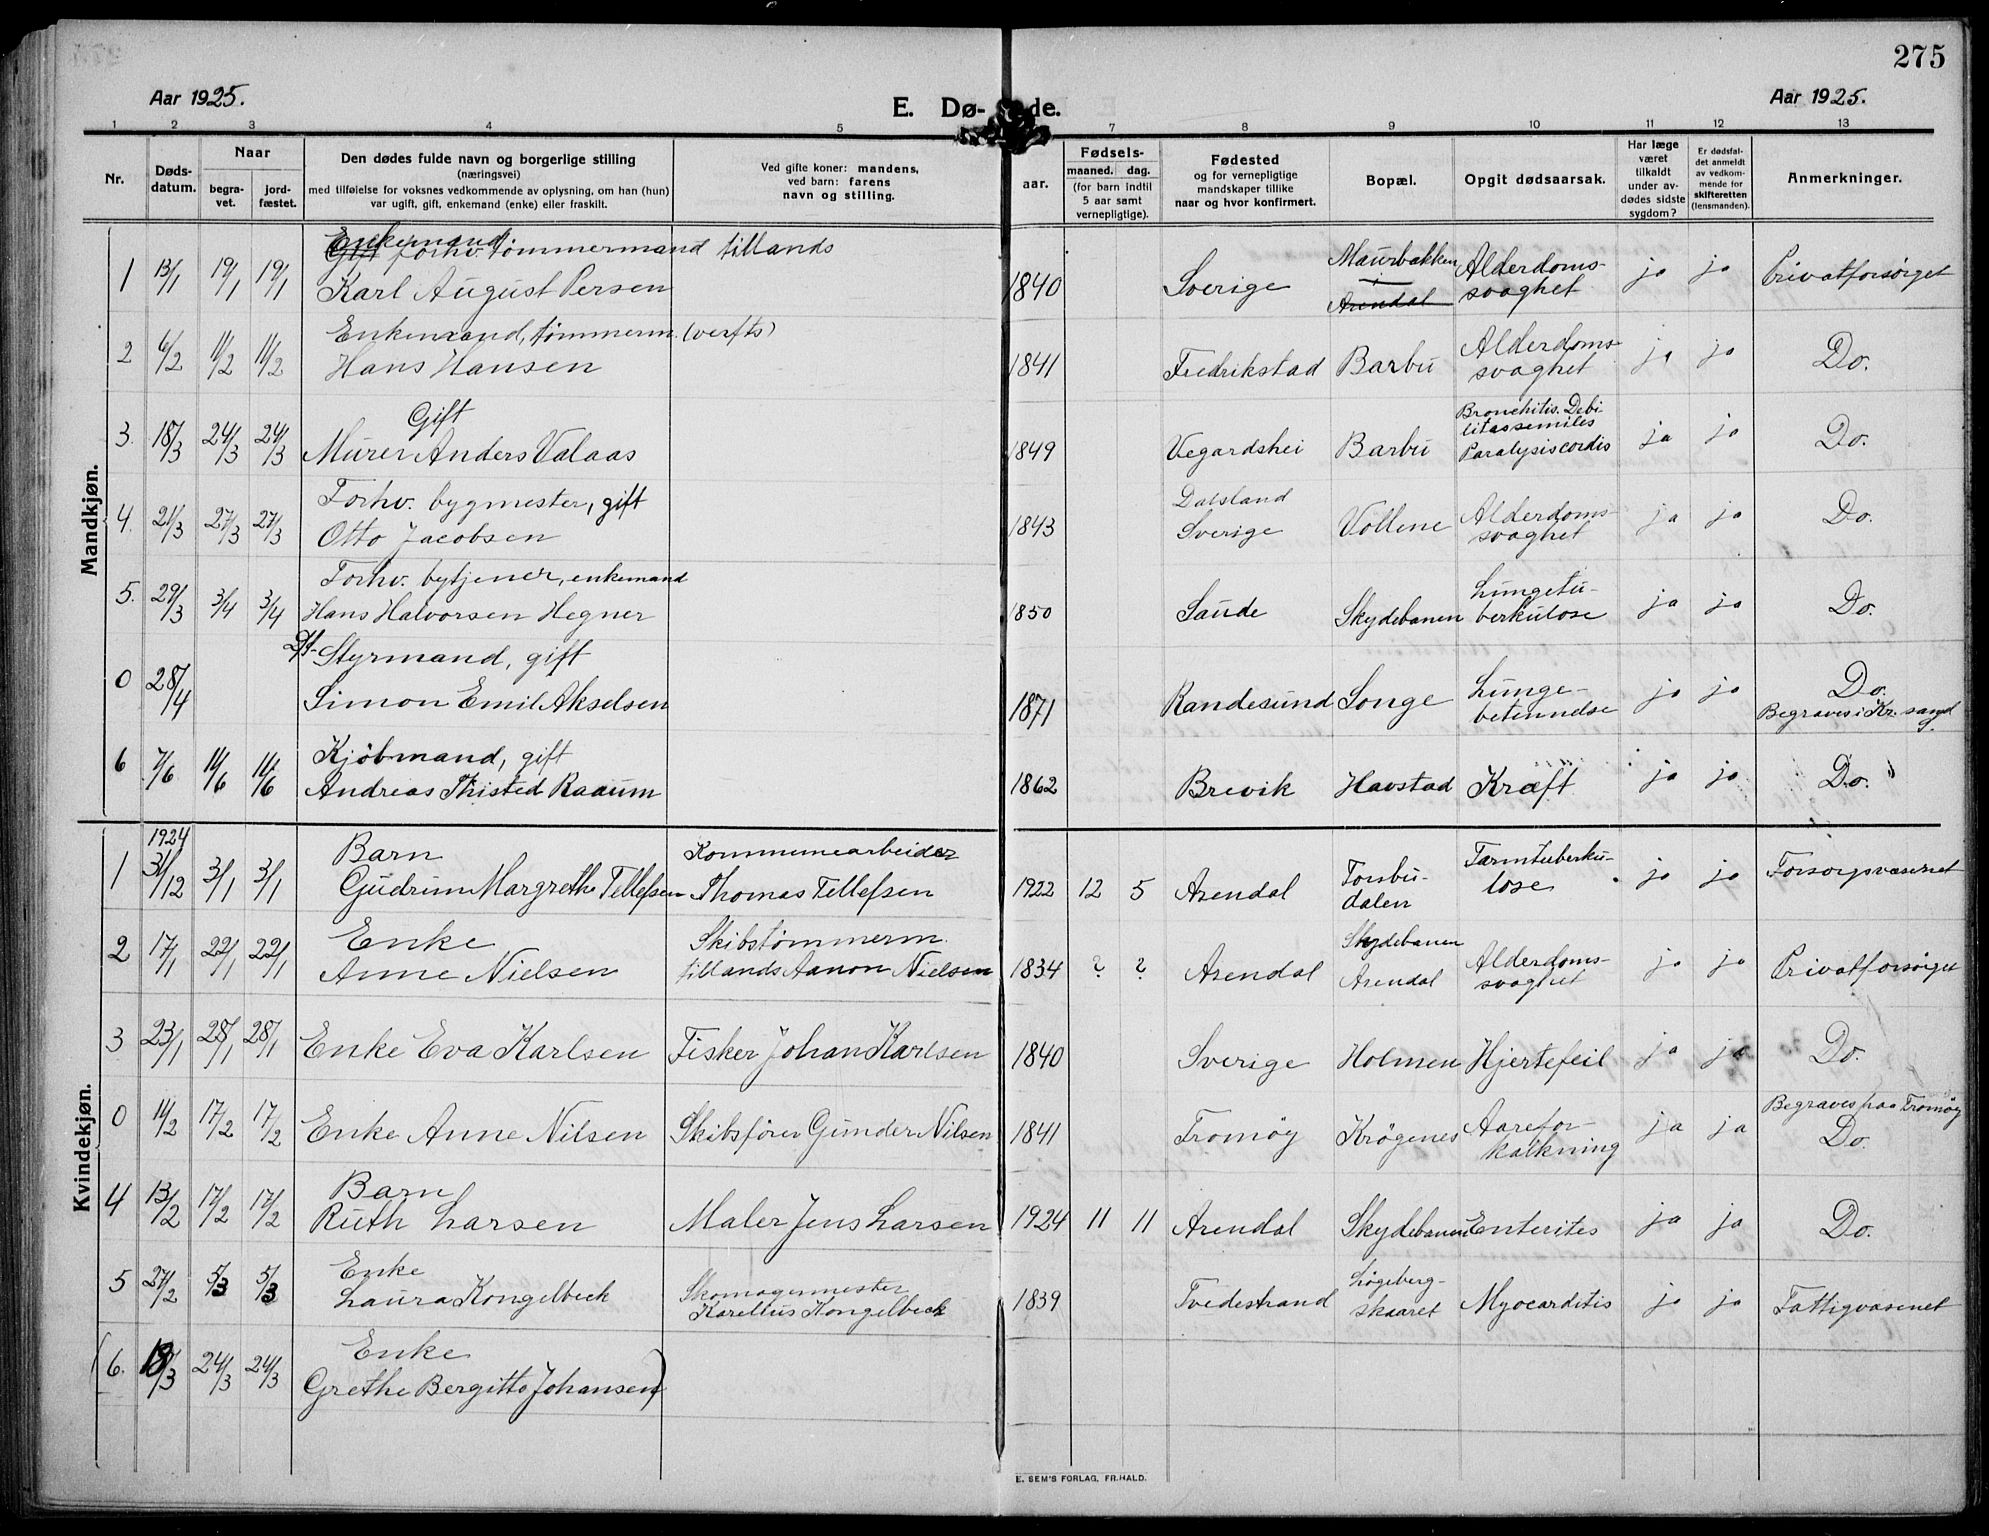 275
Aar 1925.
E. Dø-
de.
Aar 1925.
1 2 3 4 5 7 8 9 10 11 12 13
Nr.
Døds-
datum.
Naar
begra-
vet.
jord-
fæstet.
Den dødes fulde navn og borgerlige stilling
(næringsvei)
med tilføielse for voksnes vedkommende av oplysning, om han (hun)
var ugift, gift, enkemand (enke) eller fraskilt.
Ved gifte koner: mandens,
ved barn: farens
navn og stilling.
aar.
Fødsels-
maaned. dag.
(for barn indtil
5 aar samt
vernepligtige).
Fødested
og for vernepligtige
mandskaper tillike
naar og hvor konfirmert.
Bopæl.
Opgit dødsaarsak.
Har læge
været
tilkaldt
under av-
dødes sidste
sygdom?
Er dødsfal-
det anmeldt
av vedkom-
mende for
skifteretten
(lensmanden).
Anmerkninger.
Mandkjøn.
Enkemand
Gift forhv. tømmermand tillands
1 13/1 19/1 19/1 Karl August Persen 1840 Sverige Maurbakken
i Arendal Alderdoms-
svaghet ja ja Privatforsørget
Enkemand, tømmerm. (verfts)
2 6/2 11/2 11/2 Hans Hansen 1841 Fredrikstad Barbu Alderdoms-
svaghet ja ja Do.
Gift
3. 18/3 24/3 24/3 Murer Anders Valaas 1849 Vegardshei Barbu Bronchitis. Debi-
litas semiles
Paralysis cordis ja ja Do.
Forhv. bygmester, gift
4. 21/3 27/3 27/3 Otto Jacobsen 1843 Dalsland
Sverige Vollene Alderdoms-
svaghet ja ja Do.
Forhv. bytjener, enkemand
5. 29/3 3/4 3/4 Hans Halvorsen Hegner 1850 Saude Skydebanen Lungetu-
berkulose ja ja Do.
Styrmand, gift
0 28/4 Simon Emil Akselsen 1871 Randesund Songe Lunge-
betenndse ja ja Do.
Begraves i Kr.sand.
Kjöbmand, gift
6 7/6 11/6 11/6 Andreas Thisted Raaum 1862 Brevik Havstad Kræft ja ja " Do. "
Kvindekjøn.
1924
Barn Kommunearbeider
1 31/12 3/1 3/1 Gudrun Margrethe Tellefsen Thomas Tellefsen 1922 12 5 Arendal Torsbu-
dalen Tarmtuberku-
lose ja ja Forsorgsvæsenet
Enke Skibstömmerm.
2 17/1 22/1 22/1 Anne Nielsen tillands Aanon Nielsen 1834 ? ? Arendal Skydebanen
Arendal Alderdoms-
svaghet ja ja Privatforsörget
3 23/1 28/1 28/1 Enke Eva Karlsen Fisker Johan Karlsen 1840 Sverige Holmen Hjertefeil ja ja Do.
0 11/2 17/2 17/2 Enke Anne Nilsen Skibsförer Gunder Nilsen 1841 Tromöy Krögenes Aarefor-
kalkning ja ja Begraves paa Tromöy
Do.
Barn
4 13/2 17/2 17/2 Ruth Larsen Maler Jens Larsen 1924 11 11 Arendal Skydebanen Enterites ja ja Do.
Enke Skomagermester
5 27/2 5/3 5/3 Laura Kongelbeck Karelius Kongelbeck 1839 Tvedestrand Lögeberg-
skaaret Myocarditis ja ja Fattigvæsenet
Enke
(6. 18/3 24/3 24/3 Grethe Bergitte Johansen)
E. SEM'S FORLAG, FR.HALD.